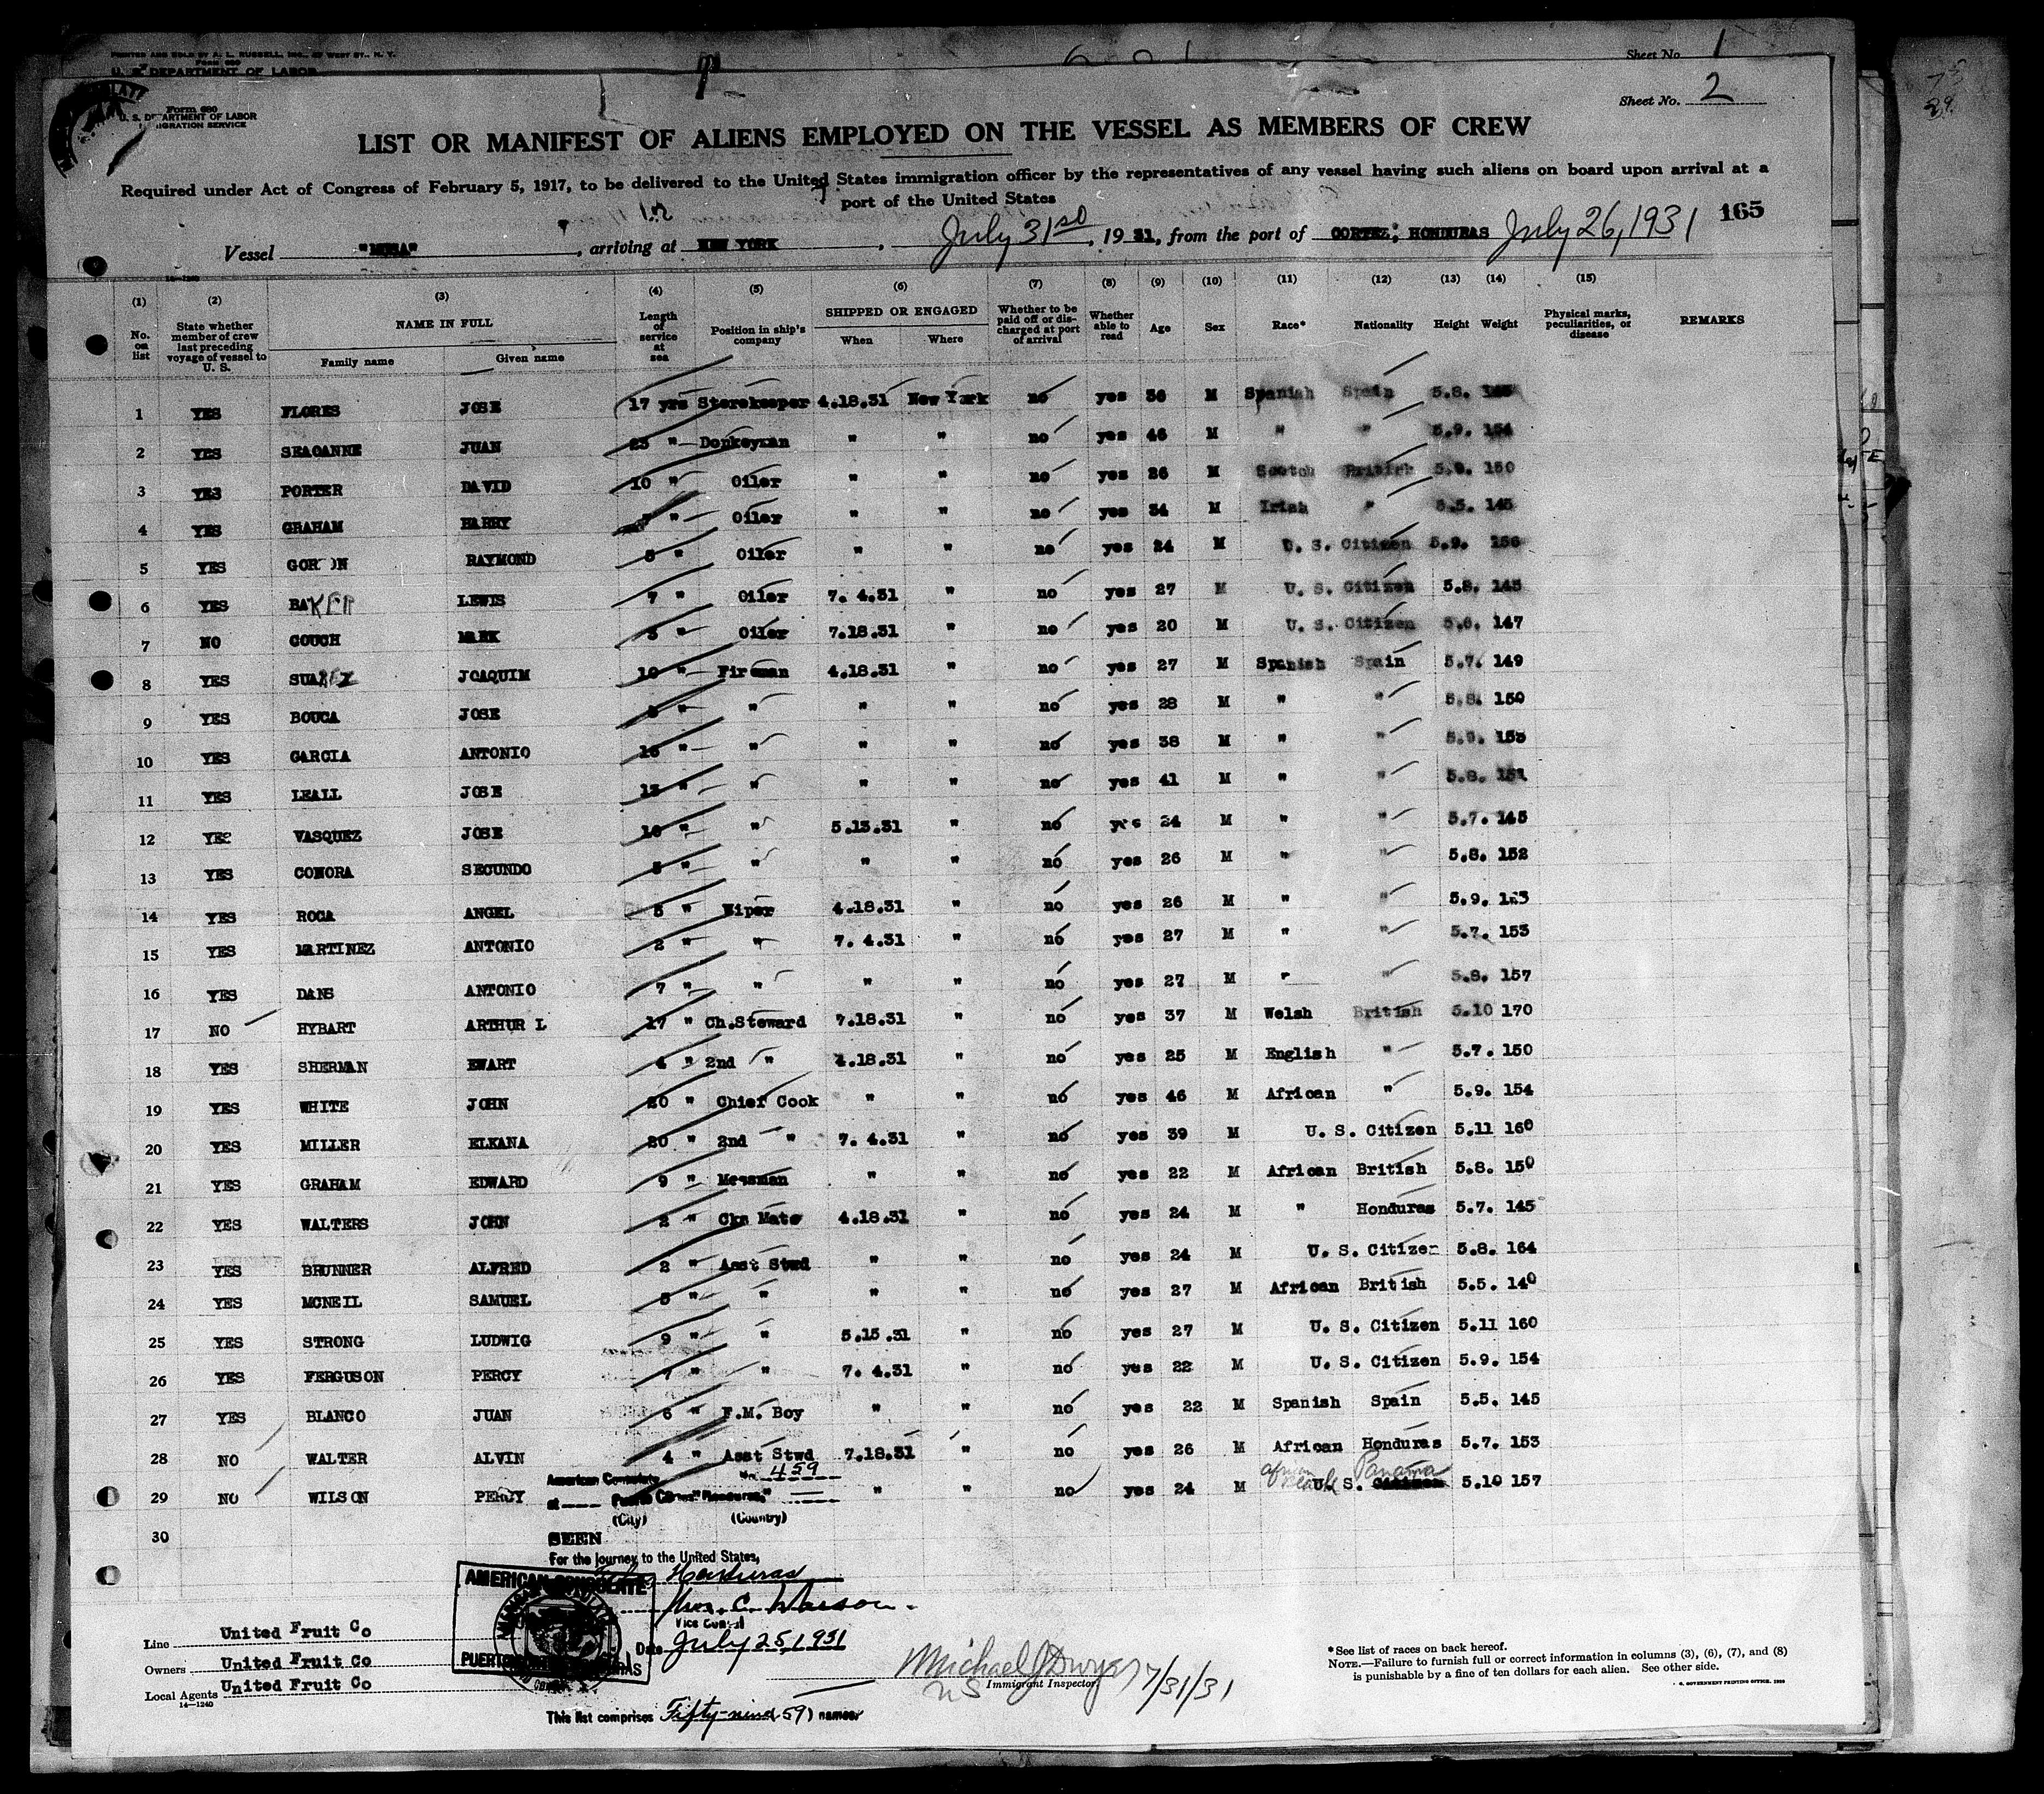 PRINTED AND SOLD BY A. L. RUSSELL, INC., WEST ST., N. Y.
Form 680
U. S. DEPARTMENT OF LABOR
Sheet No. 1
Sheet No. 2
Form 680
U. S. DEPARTMENT OF LABOR
IMMIGRATION SERVICE
LIST OR MANIFEST OF ALIENS EMPLOYED ON THE VESSEL AS MEMBERS OF CREW
Required under Act of Congress of February 5, 1917, to be delivered to the United States immigration officer by the representatives of any vessel having such aliens on board upon arrival at a
port of the United States
165
Vessel "MUSA", arriving at NEW YORK, July 31st, 1931, from the port of CORTEZ, HONDURAS July 26, 1931
(1) (2) (3) (4) (5) (6) (7) (8) (9) (10) (11) (12) (13) (14) (15)
No. on list State whether member of crew last preceding voyage of vessel to U. S. NAME IN FULL Family name Given name Length of service at sea Position in ship's company SHIPPED OR ENGAGED When Where Whether to be paid off or discharged at port of arrival Whether able to read Age Sex Race* Nationality Height Weight Physical marks, peculiarities, or disease REMARKS
1 YES FLORES JOSE 17 yrs Storekeeper 4.18.31 New York no yes 36 M Spanish Spain 5.8.
2 YES SEAOANNE JUAN 25 " Donkeyman " " no yes 46 M " " 5.9. 154
3 YES PORTER DAVID 10 " Oiler " " no yes 26 M Scotch British 5.8. 150
4 YES GRAHAM HARRY 7 " Oiler " " no yes 34 M Irish " 5.5. 145
5 YES GORDON RAYMOND 8 " Oiler " " no yes 24 M U. S. Citizen 5.9. 156
6 YES BAKER LEWIS 7 " Oiler 7. 4.31 " no yes 27 M U. S. Citizen 5.8. 145
7 NO GOUCH MARK 3 " Oiler 7.18.31 " no yes 20 M U. S. Citizen 5.6. 147
8 YES SUAREZ JOAQUIM 10 " Fireman 4.18.31 " no yes 27 M Spanish Spain 5.7. 149
9 YES BOUCA JOSE " " " " no yes 28 M " " 5.8. 150
10 YES GARCIA ANTONIO 16 " " " " no yes 38 M " " 5.9. 155
11 YES LEALL JOSE 13 " " " " no yes 41 M " " 5.8. 151
12 YES VASQUEZ JOSE 10 " " 5.13.31 " no yes 24 M " " 5.7. 145
13 YES COMORA SECUNDO 5 " " " " no yes 26 M " " 5.8. 152
14 YES ROCA ANGEL 5 " Wiper 4.18.31 " no yes 26 M " " 5.9. 153
15 YES MARTINEZ ANTONIO 2 " " 7. 4.31 " no yes 27 M " " 5.7. 153
16 YES DANS ANTONIO 7 " " " " no yes 27 M " " 5.8. 157
17 NO HYBART ARTHUR L 17 " Ch.Steward 7.18.31 " no yes 37 M Welsh British 5.10 170
18 YES SHERMAN EWART 4 " 2nd " 4.18.31 " no yes 25 M English " 5.7. 150
19 YES WHITE JOHN 20 " Chief Cook " " no yes 46 M African " 5.9. 154
20 YES MILLER ELKANA 20 " 2nd " 7. 4.31 " no yes 39 M U. S. Citizen 5.11 160
21 YES GRAHAM EDWARD 9 " Messman " " no yes 22 M African British 5.8. 150
22 YES WALTERS JOHN 2 " Cks Mate 4.18.31 " no yes 24 M " Honduras 5.7. 145
23 YES BRUNNER ALFRED 2 " Asst Stwd " " no yes 24 M U. S. Citizen 5.8. 164
24 YES MCNEIL SAMUEL 5 " " " " no yes 27 M African British 5.5. 140
25 YES STRONG LUDWIG 9 " " 5.15.31 " no yes 27 M U. S. Citizen 5.11 160
26 YES FERGUSON PERCY 7 " " 7. 4.31 " no yes 22 M U. S. Citizen 5.9. 154
27 YES BLANCO JUAN 6 " F.M. Boy " " no yes 22 M Spanish Spain 5.5. 145
28 NO WALTER ALVIN 4 " Asst Stwd 7.18.31 " no yes 26 M African Honduras 5.7. 153
29 NO WILSON PERCY " " no yes 24 M African Black U. S. Citizen Panama 5.10 157
30
American Consulate No. 459
at Puerto Cortes, Honduras,
(City) (Country)
SEEN
For the journey to the United States,
Honduras
AMERICAN CONSULATE
Wm. C. Wasson
Vice Consul
Date July 25, 1931
PUERTO
Line United Fruit Co
Owners United Fruit Co
Local Agents United Fruit Co
14—1240
Michael J Dwyer 7/31/31
US Immigrant Inspector
This list comprises Fifty-nine (59) names.
*See list of races on back hereof.
NOTE.—Failure to furnish full or correct information in columns (3), (6), (7), and (8)
is punishable by a fine of ten dollars for each alien. See other side.
U. S. GOVERNMENT PRINTING OFFICE